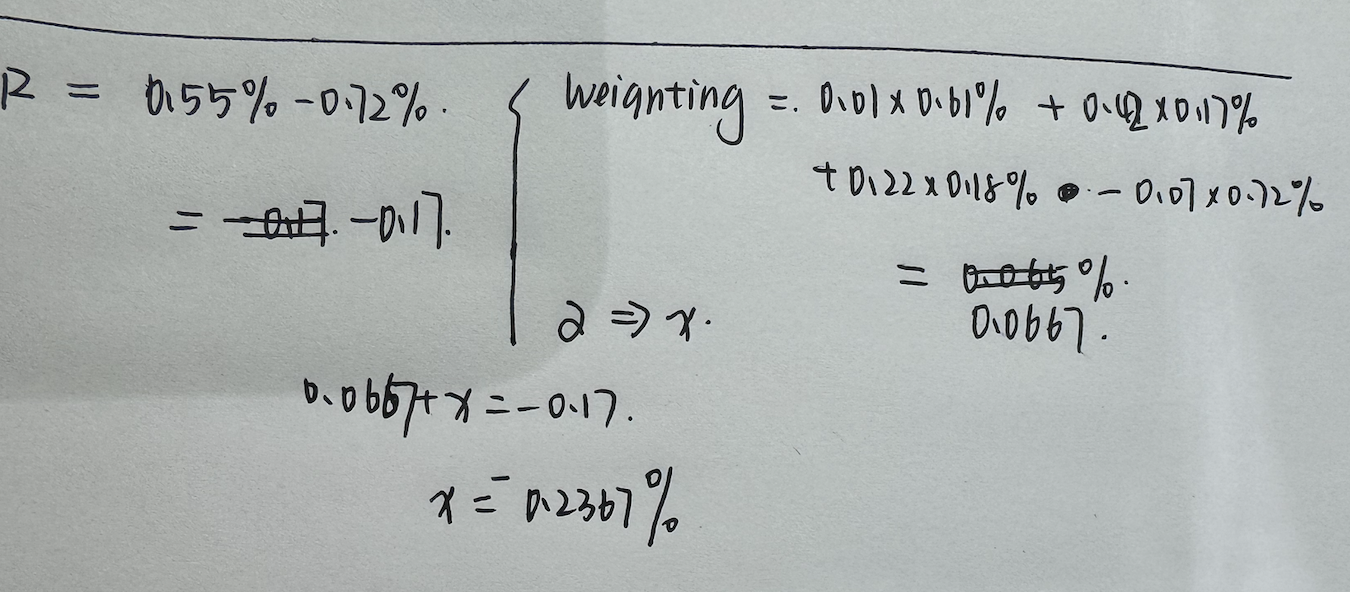 R = 0.55% - 0.72%.
= -0.17. -0.17.
weignting =. 0.01 × 0.61% + 0.12 × 0.17%
+ 0.22 × 0.18% - 0.07 × 0.72%
= 0.065%.
0.0667.
2 ⇒ x.
0.0667 + x = -0.17.
x = -0.2367%